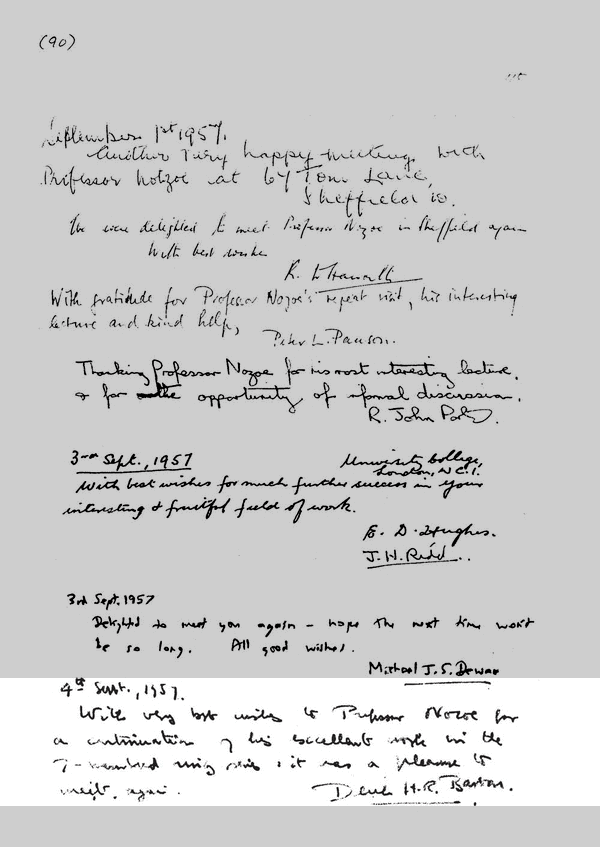 (90)
September 1st 1957.
Another very happy meeting with
Professor Nozoe at 67 Tom Lane,
Sheffield 10.
We were delighted to meet Professor Nozoe in Sheffield again
With best wishes
R. D. Haworth
With gratitude for Professor Nozoe's repeat visit, his interesting
lecture and kind help,
Peter L. Pauson.
Thanking Professor Nozoe for his most interesting lecture,
& for the opportunity of informal discussion.
R. John
3rd Sept., 1957
University College,
London, W.C.1.
With best wishes for much further success in your
interesting & fruitful field of work.
E. D. Hughes.
J. H. Ridd.
3rd Sept. 1957
Delighted to meet you again - hope the next time won't
be so long. All good wishes.
Michael J. S. Dewar
4th Sept., 1957.
With very best wishes to Professor Nozoe for
a continuation of his excellent work in the
7-membered ring series: it was a pleasure to
meet again.
Derek H. R. Barton.